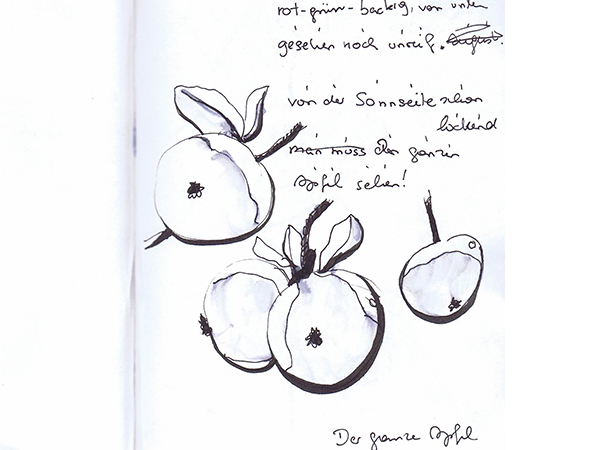 rot-grün-backig, von unten
gesehen noch unreif. August.
von der Sonnseite schon
lockend
man muss den ganzen
Apfel sehen!
Der ganze Apfel